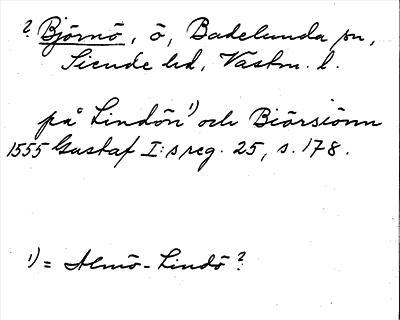 ? Björnö, ö, Badelunda sn,
Siende hd, Västm. l.
på Lindön¹⁾ och Biörsiönn
1555 Gustaf I:s reg. 25, s. 178.
¹⁾ = Almö-Lindö?